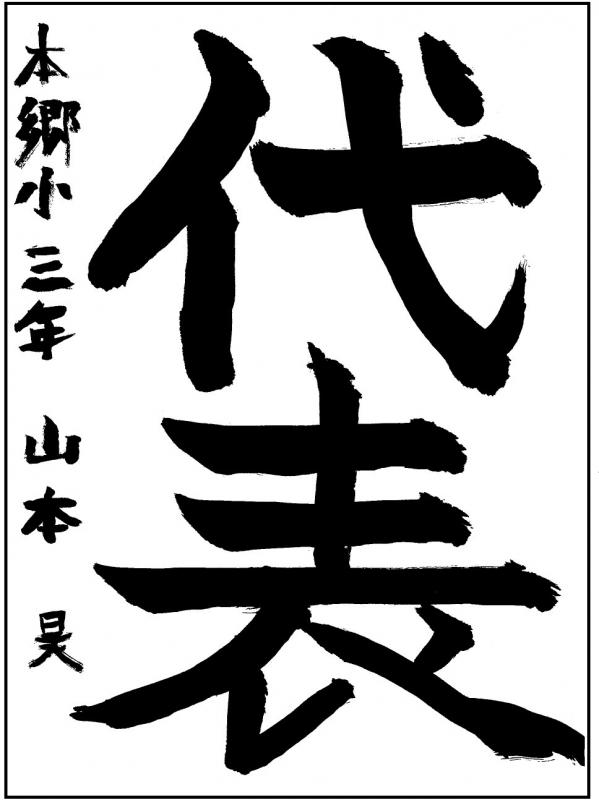 代表
本郷小三年 山本 昊